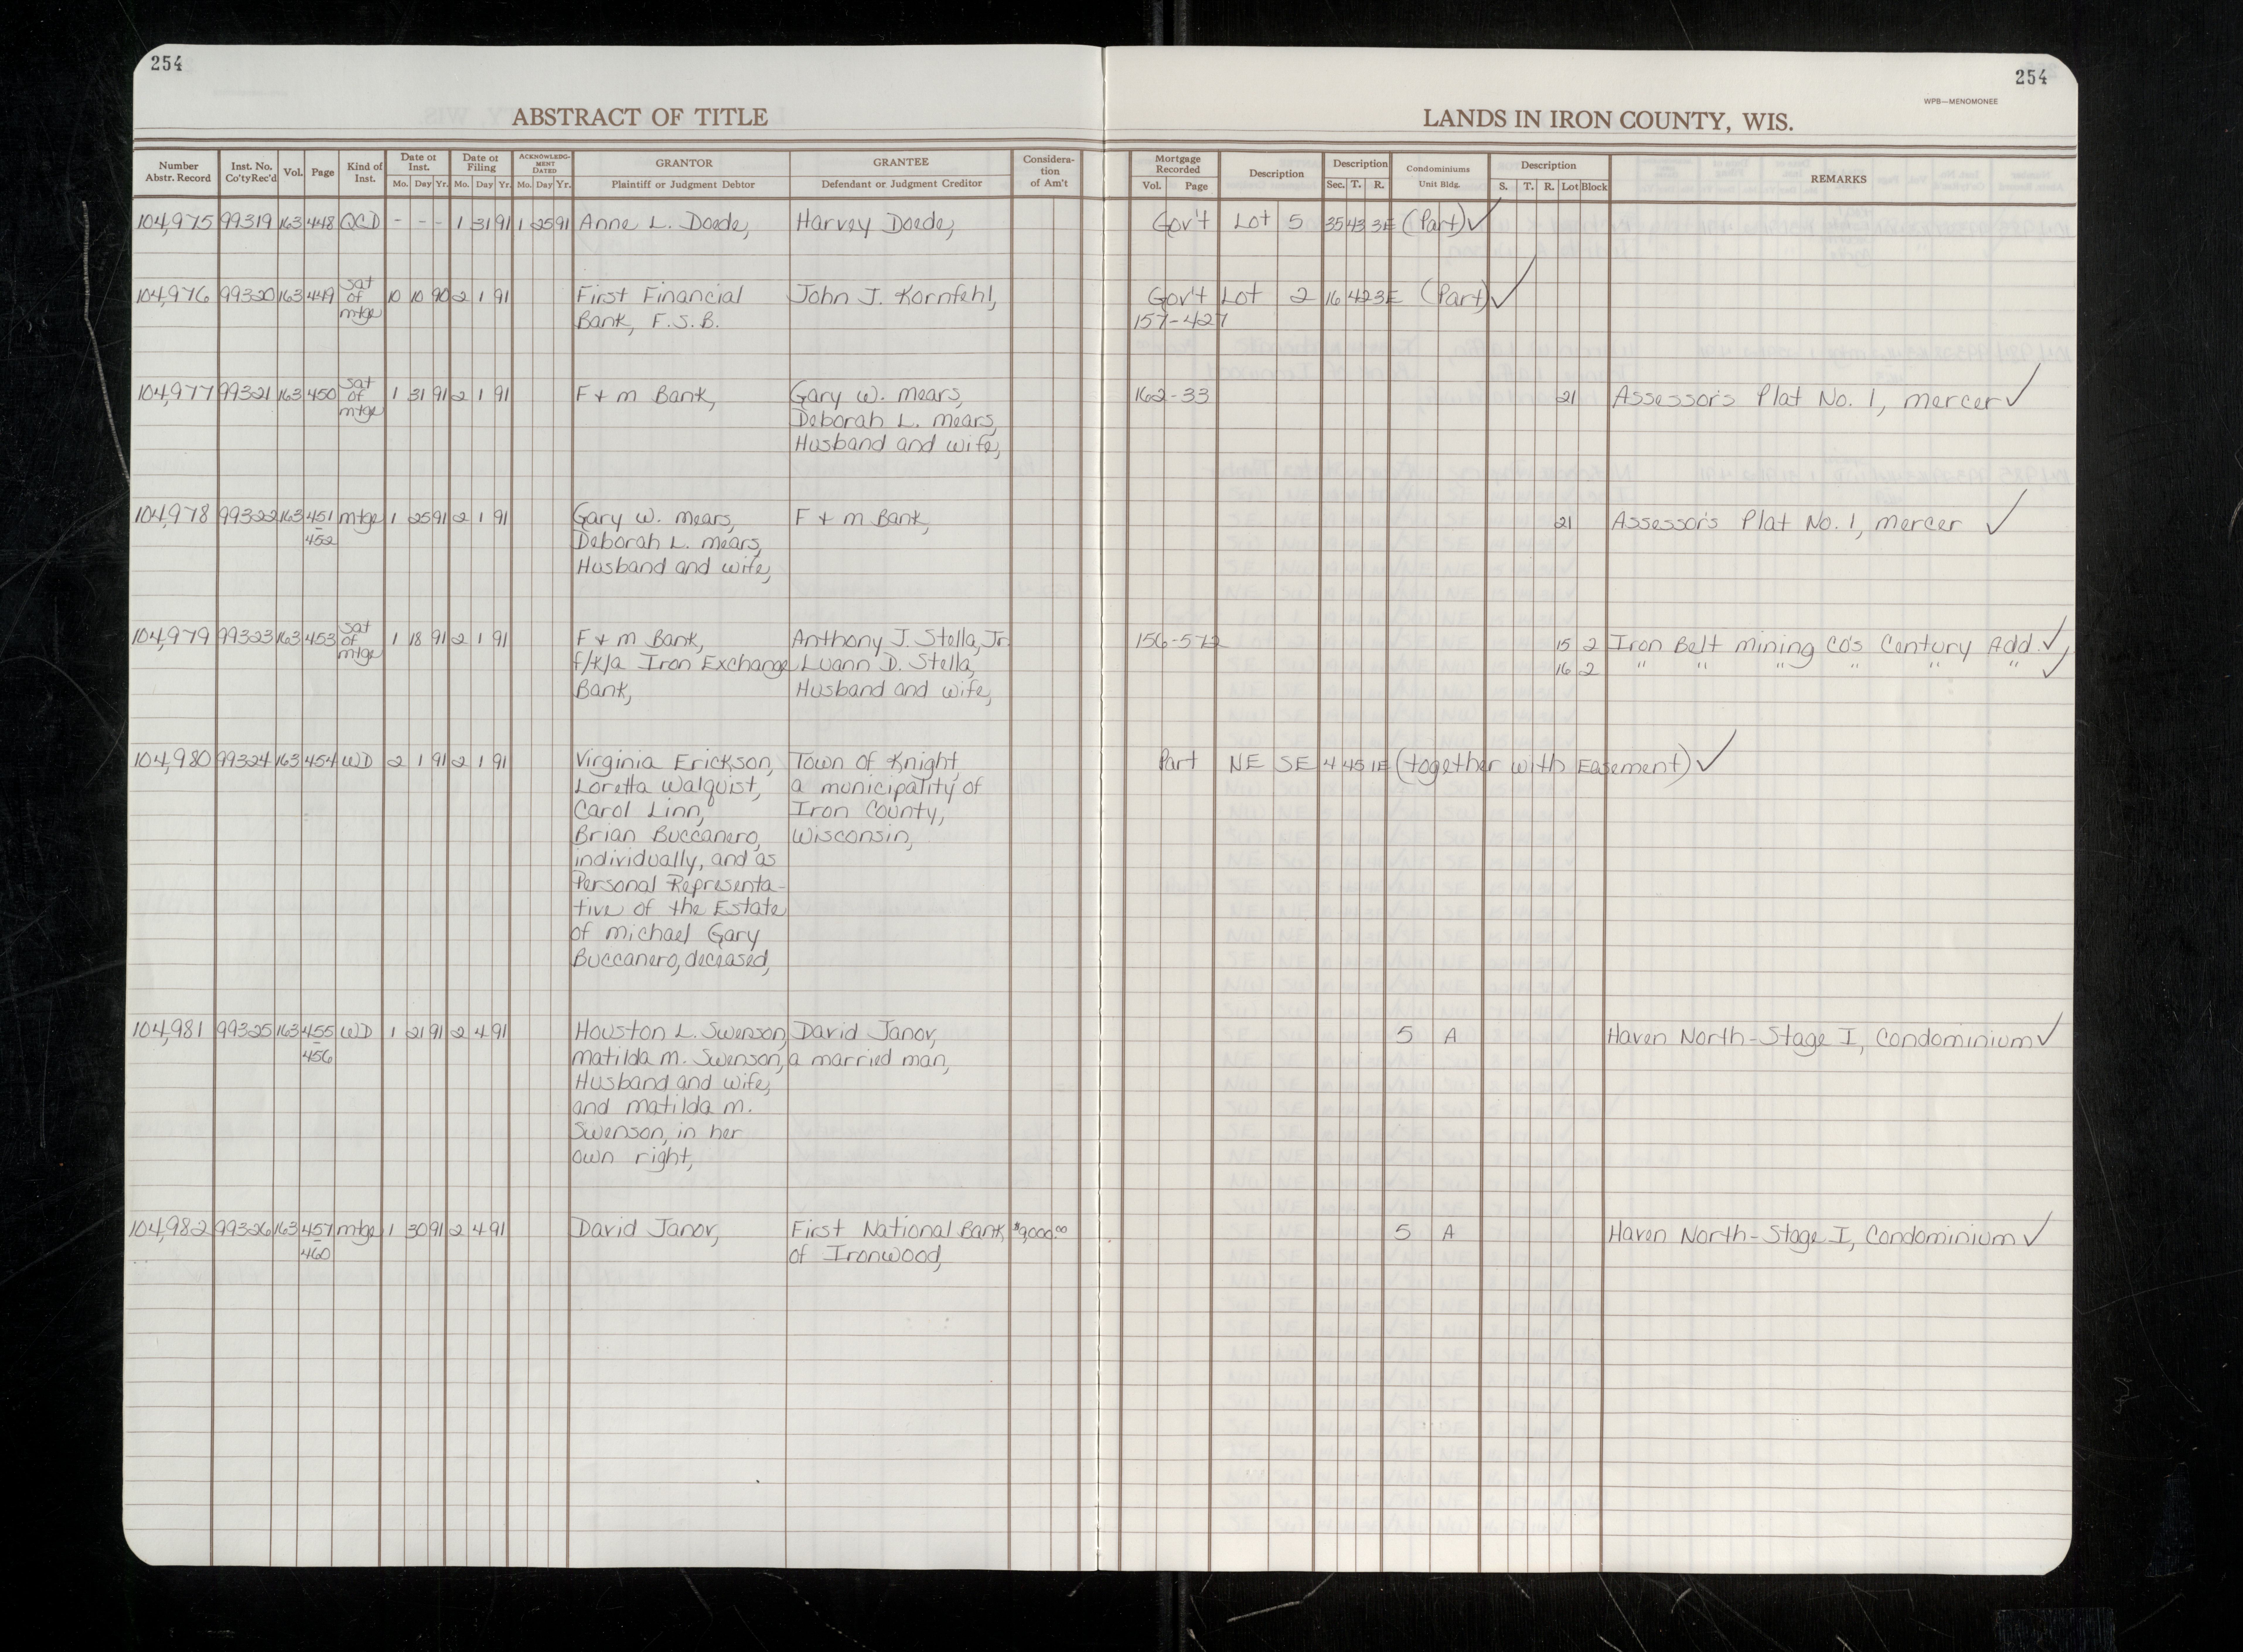 254
254
WPB—MENOMONEE
ABSTRACT OF TITLE
LANDS IN IRON COUNTY, WIS.
Number Abstr. Record | Inst. No. Co'tyRec'd | Vol. | Page | Kind of Inst. | Date of Inst. Mo. Day Yr. | Date of Filing Mo. Day Yr. | ACKNOWLEDG-MENT DATED Mo. Day Yr. | GRANTOR Plaintiff or Judgment Debtor | GRANTEE Defendant or Judgment Creditor | Considera-tion of Am't | Mortgage Recorded Vol. Page | Description | Description Sec. T. R. | Condominiums Unit Bldg. | Description S. T. R. Lot Block | REMARKS
104,975 99319 163 448 QCD - - - 1 31 91 1 25 91 Anne L. Doede, Harvey Doede, Gov't Lot 5 35 43 3E (Part) ✓
104,976 99320 163 449 Sat of mtge 10 10 90 2 1 91 First Financial John J. Kornfehl, Gov't Lot 2 16 42 3E (Part) ✓
Bank, F.S.B. 157-427
104,977 99321 163 450 Sat of mtge 1 31 91 2 1 91 F + M Bank, Gary W. Mears, 162-33 21 Assessor's Plat No. 1, Mercer ✓
Deborah L. Mears,
Husband and wife,
104,978 99322 163 451 mtge 1 25 91 2 1 91 Gary W. Mears, F + M Bank, 21 Assessor's Plat No. 1, Mercer ✓
- 452 Deborah L. Mears,
Husband and wife,
104,979 99323 163 453 Sat of mtge 1 18 91 2 1 91 F + M Bank, Anthony J. Stella, Jr. 156-572 15 2 Iron Belt Mining Co's Century Add. ✓,
f/k/a Iron Exchange Luann D. Stella, 16 2 " " " " " " ✓
Bank, Husband and wife,
104,980 99324 163 454 WD 2 1 91 2 1 91 Virginia Erickson, Town of Knight, Part NE SE 4 45 1E (together with Easement) ✓
Loretta Walquist, a municipality of
Carol Linn, Iron County,
Brian Buccanero, Wisconsin,
individually, and as
Personal Representa-
tive of the Estate
of Michael Gary
Buccanero, deceased,
104,981 99325 163 455 WD 1 21 91 2 4 91 Houston L. Swenson, David Janov, 5 A Haven North-Stage I, Condominium ✓
- 456 Matilda M. Swenson, a married man,
Husband and wife,
and Matilda M.
Swenson, in her
own right,
104,982 99326 163 457 mtge 1 30 91 2 4 91 David Janov, First National Bank $9,000.00 5 A Haven North-Stage I, Condominium ✓
- 460 of Ironwood,